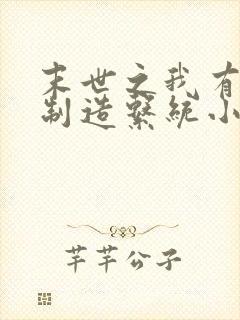 末世之我有
制造繫統小
芊芊公子